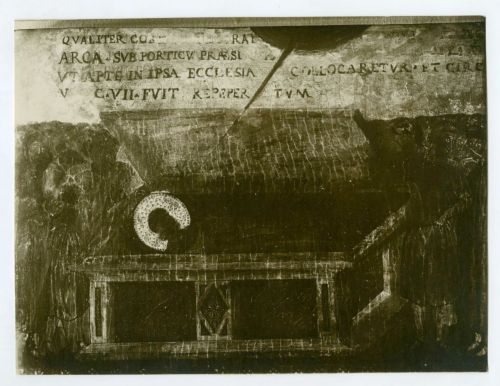 QVALITER
ARCA · SVB PORTICV PRÆSI
VT APTE IN IPSA ECCLESIA COLLOCARETVR · ET CIRC
C · VII · FVIT REPPER TVM